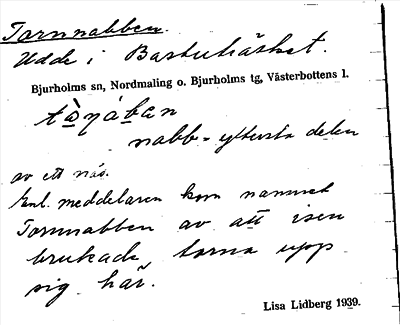 Tornnabben.
Udde i Bastuträsket.
Bjurholms sn, Nordmaling o. Bjurholms tg, Västerbottens l.
nabb = yttersta delen
av ett näs.
Enl. meddelaren kom namnet
Tornnabben av att isen
brukade torna upp
sig här.
Lisa Lidberg 1939.